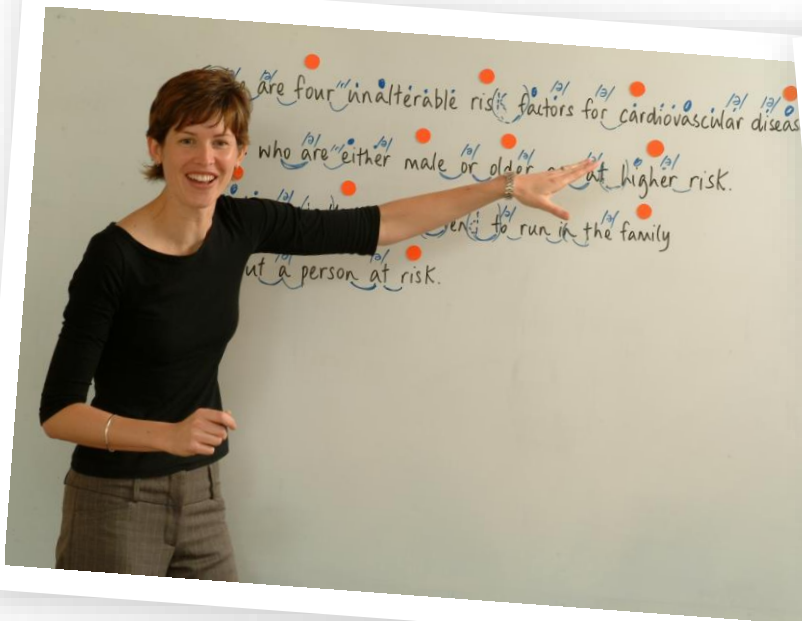 are four unalterable risk factors for cardiovascular diseas
who are either male or older at higher risk.
to run in the family
a person at risk.